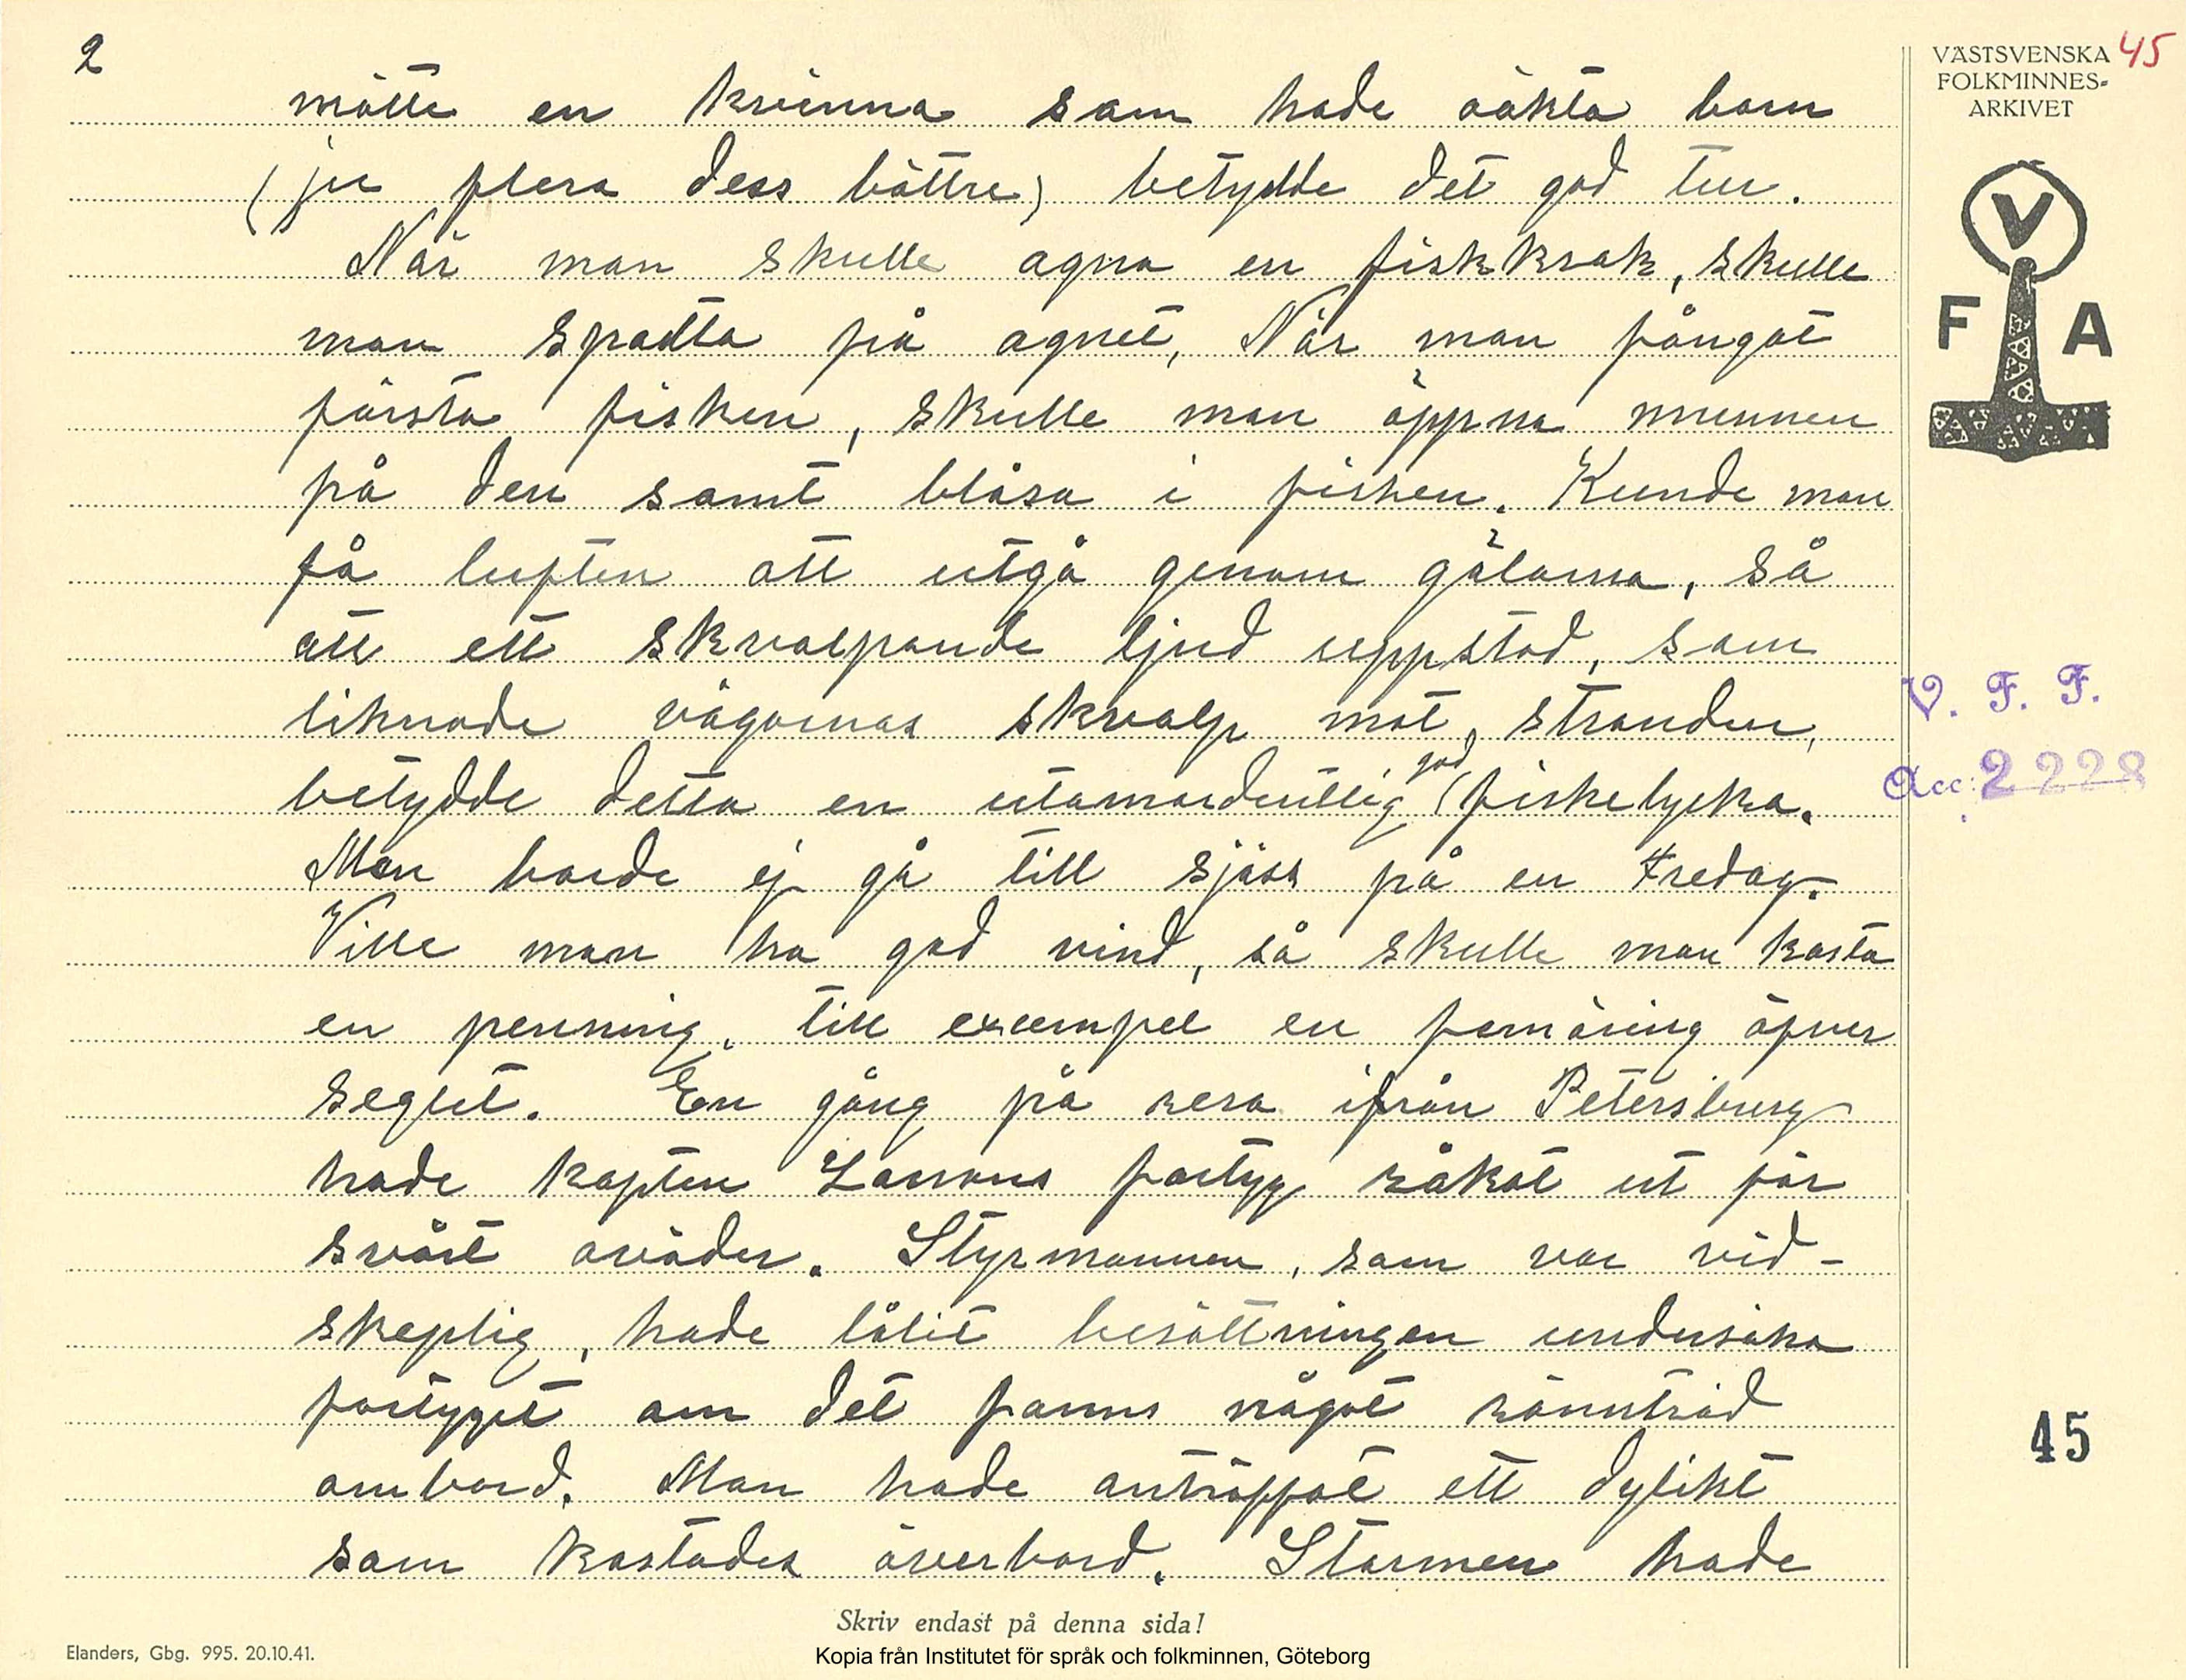 2
mötte en kvinna som hade oäkta barn
(ju flera dess bättre) betydde det god tur.
När man skulle agna en fiskkrok, skulle
man spotta på agnet, När man fångat
första fisken, skulle man öppna munnen
på den samt blåsa i fisken. Kunde man
få luften att utgå genom gälarna, så
att ett skvalpande ljud uppstod, som
liknade vågornas skvalp mot stranden,
betydde detta en utomordentlig god fiskelycka.
Man borde ej gå till sjöss på en Fredag.
Ville man ha god vind, så skulle man kasta
en penning, till exempel en femöring öfver
seglet. En gång på resa ifrån Petersburg
hade kapten Larsons fartyg råkat ut för
svårt oväder. Styrmannen, som var vid-
skeplig, hade låtit besättningen undersöka
fartyget om det fanns något rönnträd
ombord. Man hade anträffat ett dylikt
som kastades överbord. Stormen hade
VÄSTSVENSKA 45
FOLKMINNES-
ARKIVET
V
F A
V. F. F.
Acc: 2228
45
Skriv endast på denna sida!
Elanders, Gbg. 995. 20.10.41.
Kopia från Institutet för språk och folkminnen, Göteborg